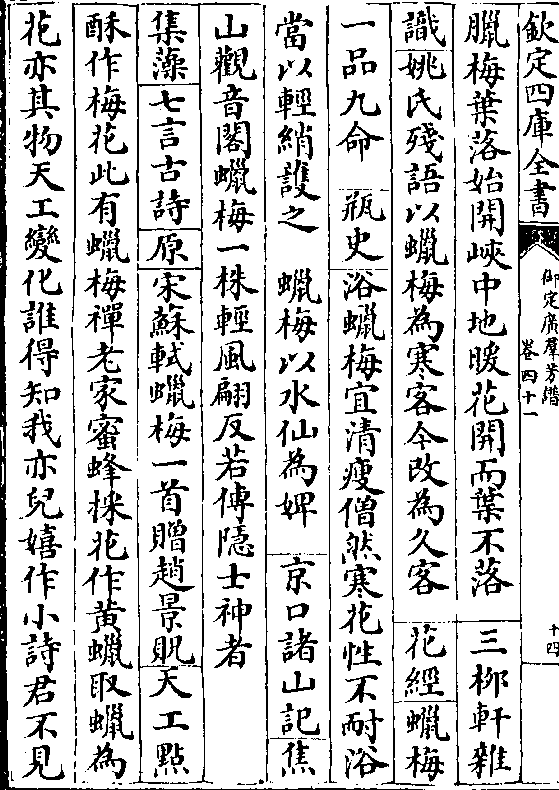 欽定四庫全書
御定廣羣芳譜
卷四十一
十四
臘梅葉落始開峽中地暖花開而葉不落 三柳軒雜
識姚氏殘語以蠟梅為寒客今改為久客 花經蠟梅
一品九命 瓶史浴蠟梅宜清瘦僧然寒花性不耐浴
當以輕綃護之 蠟梅以水仙為婢 京口諸山記焦
山觀音閣蠟梅一株輕風翩反若傅隱士神者
集藻七言古詩原宋蘇軾蠟梅一首贈趙景貺天工點
酥作梅花此有蠟梅禪老家蜜蜂採花作黃蠟取蠟為
花亦其物天工變化誰得知我亦兒嬉作小詩君不見